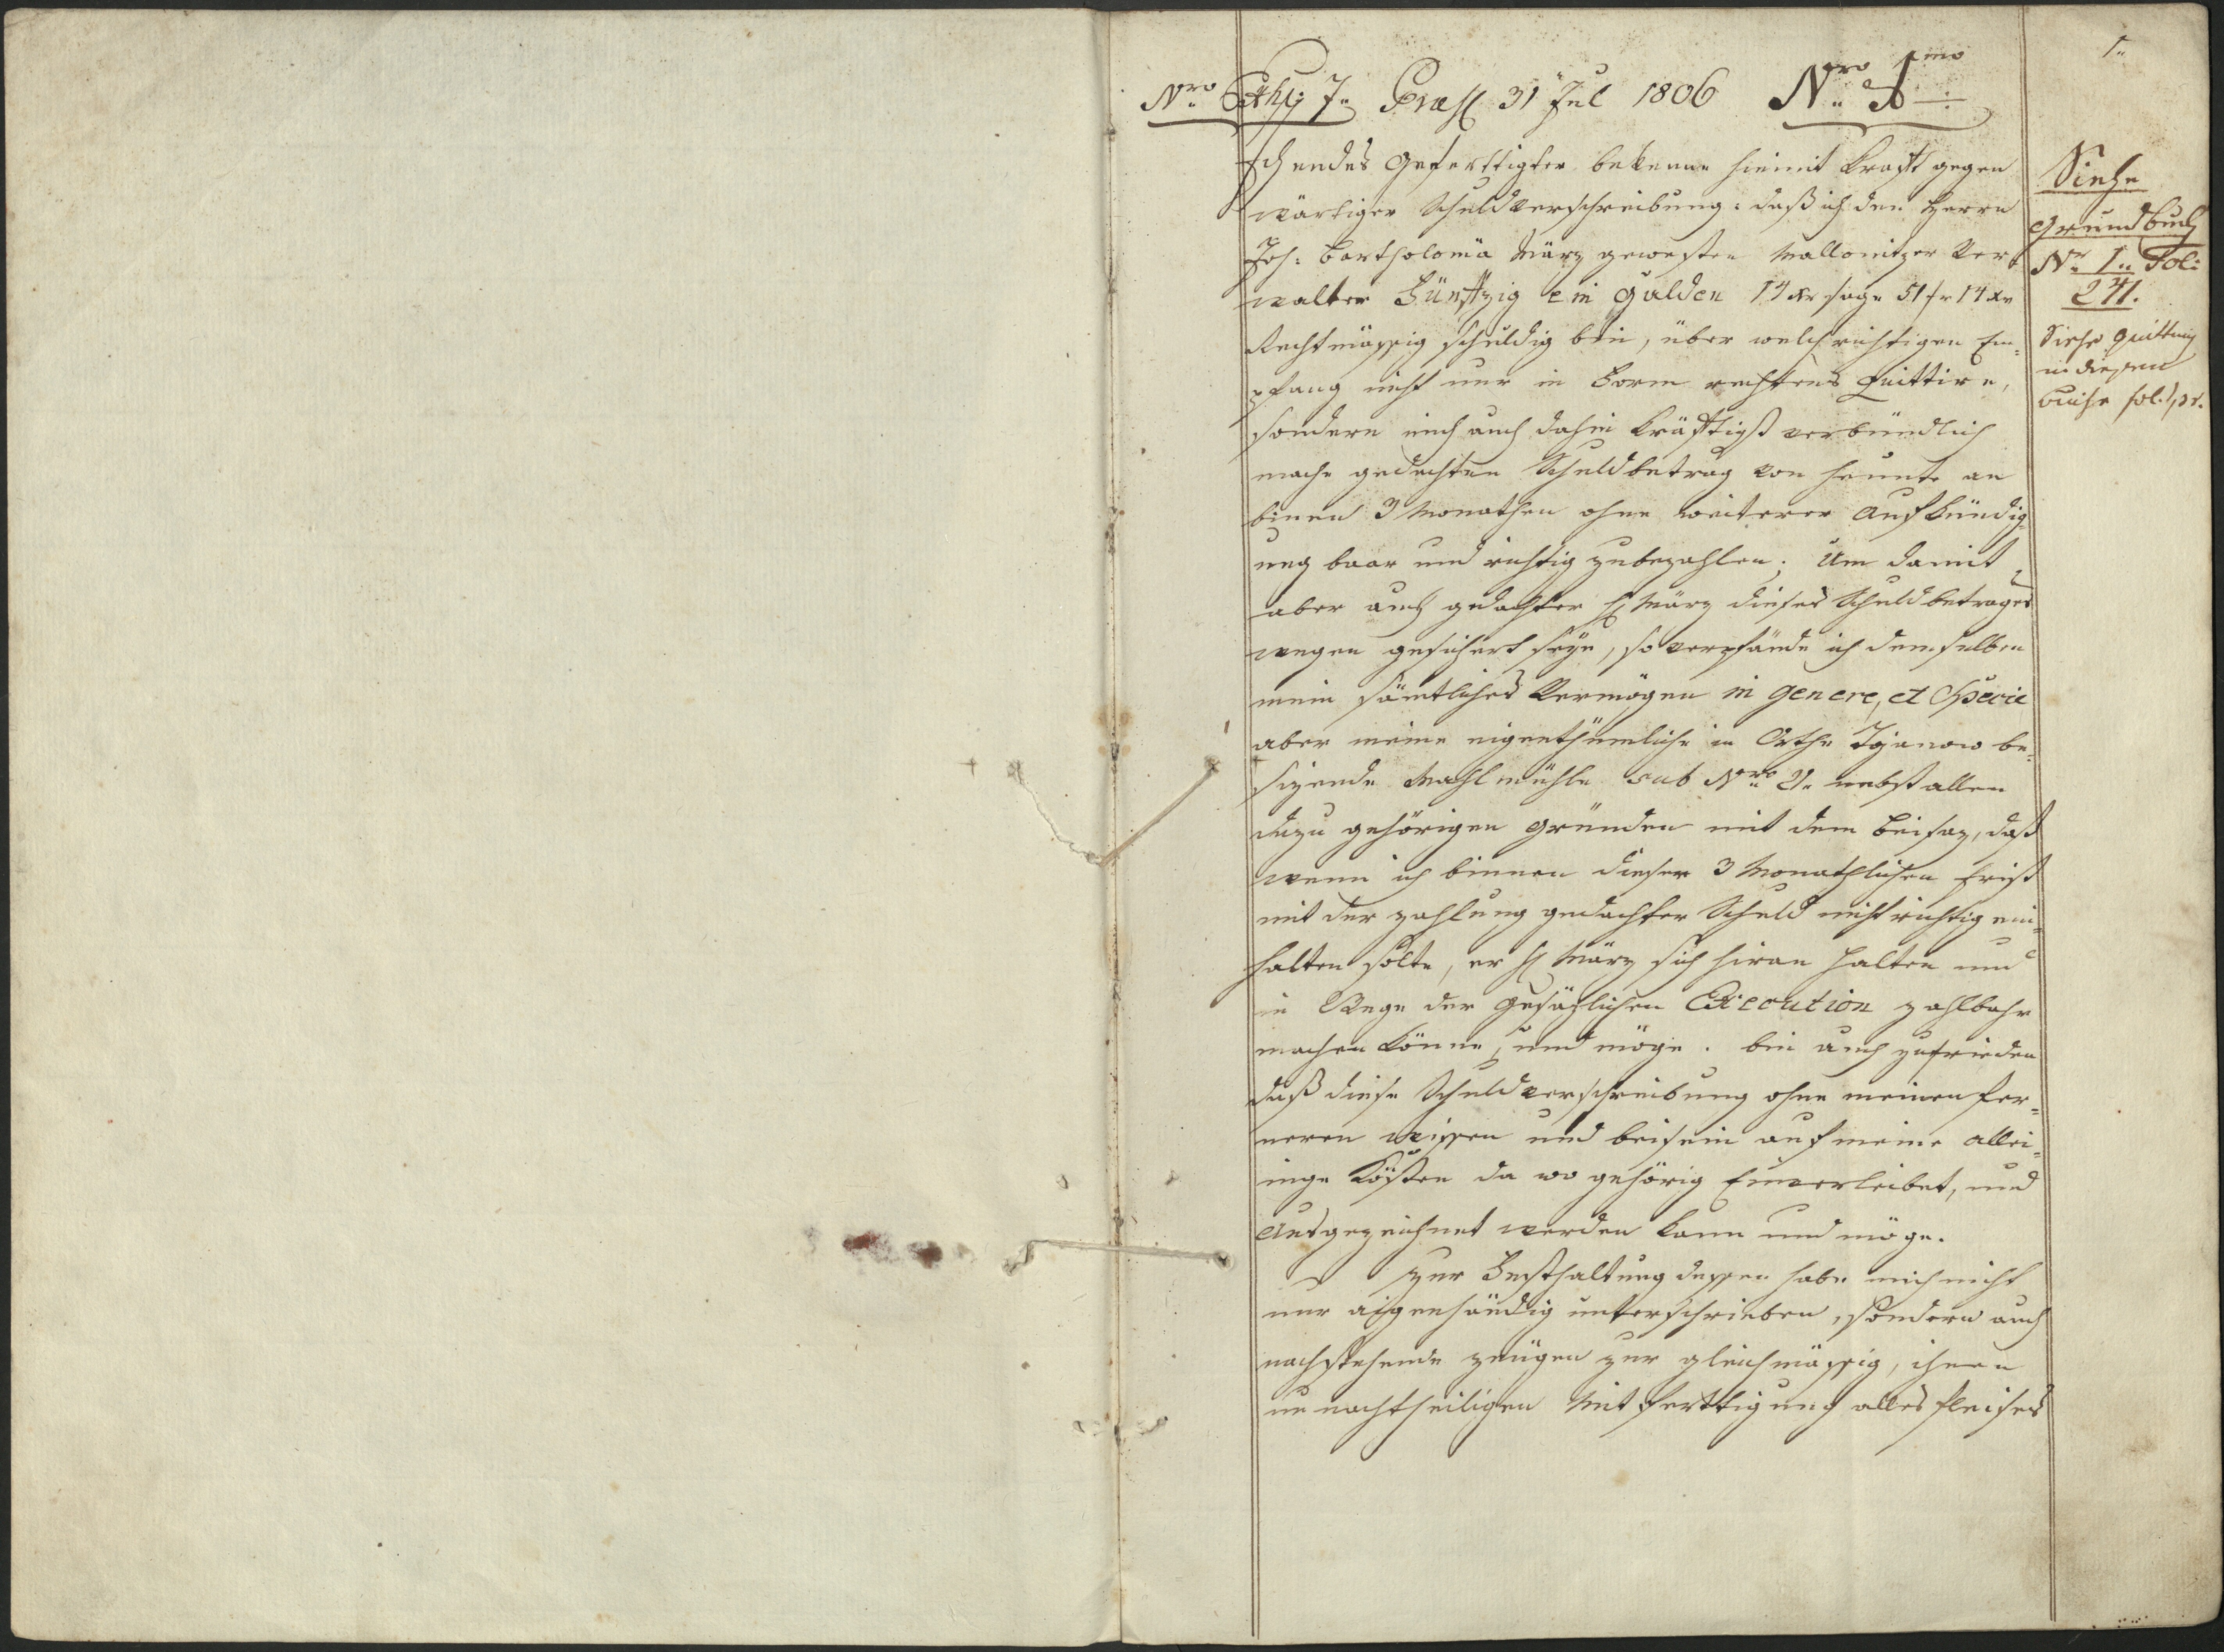 1.
Nro Exh: 7. Præs 31 Jul 1806 Nro 1mo
Ich endes Geferttigter bekenne hiemit krafft gegen
wärtiger Schuldverschreibung: daß ich den Herrn
Joh: Bartholomä März gewesten Mallonitzer Ver¬
walter Fünftzig ein Gulden 14 xr sage 51 fr 14 xr
Rechtmässig schuldig bin, über welch richtigen Em¬
pfang nicht nur in Form rechtens Quittire,
sondern mich auch dahin kräfftigst verbündlich
mache gedachten Schuldbetrag von heunte an
binen 3 Monathen ohne weiterer Aufkündig¬
ung baar und richtig zubezahlen; Um damit
aber auch gedachter H März dieses Schuldbetrages
wegen gesichert seye, so verpfände ich demselben
mein sämtliches Vermögen in genere, et Specie
aber meine eigenthümliche in Orthe be¬
sizende Mahlmühle sub Nro 21. nebst allen
dazu gehörigen Gründen mit dem Beisaz, daß
wenn ich binnen dieser 3 Monathlichen Frist
mit der zahlung gedachter Schuld nicht richtig ein¬
halten solte, er H März sich hieran halten und
in Wege der Gesäzlichen Execution zahlbahr
machen könne, und möge. bin auch zufrieden
daß diese Schuldverschreibung ohne meinen fer¬
neren wissen und beisein auf meine allei¬
nige Kösten da wo gehörig Einverleibet, und
Ausgezeichnet werden kann und möge.
Zur Festhaltung dessen habe mich nicht
nur aigenhändig unterschrieben, sondern auch
nachstehende zeugen zur gleichmässig, ihnen
unnachtheiligen Mitferttigung alles Fleises
Siehe
Grundbuch
Nr I. Fol:
241.
Siehe Quittung
in diesem
Buche fol.